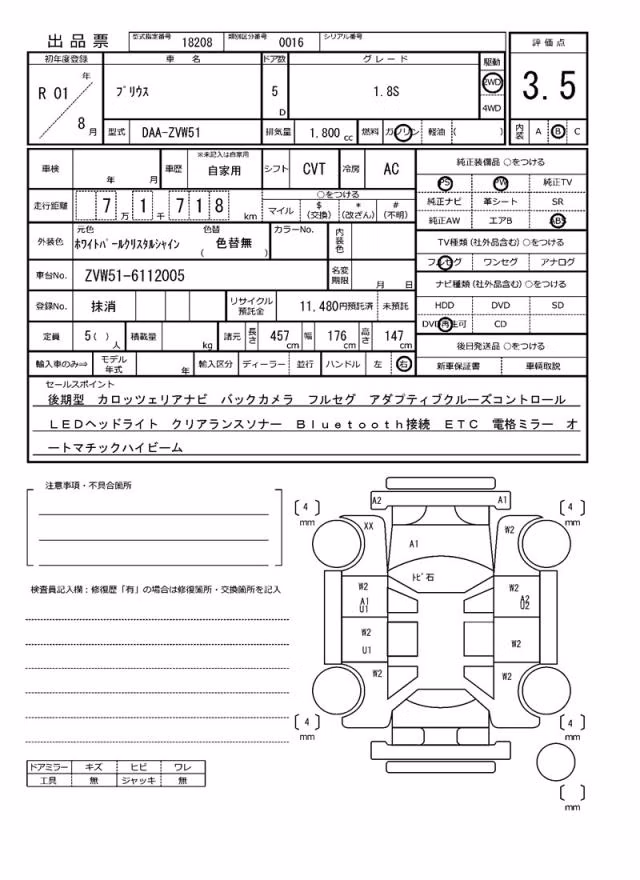 出品票
型式指定番号 18208 類別区分番号 0016 シリアル番号
評価点
3.5
内装 A B C
初年度登録 車名 ドア数 グレード 駆動
R 01 年 8 月
プリウス 5 D 1.8S 2WD 4WD
型式 DAA-ZVW51 排気量 1.800 cc 燃料 ガソリン 軽油 ( )
車検 年 月 車歴 ※未記入は自家用 自家用 シフト CVT 冷房 AC
走行距離 7 万 1 千 7 1 8 km
○をつける
マイル $(交換) *(改ざん) #(不明)
外装色 元色 ホワイトパールクリスタルシャイン 色替 ( 色替無 ) カラーNo. 内装色
車台No. ZVW51-6112005 名変期限 月 日
登録No. 抹消 リサイクル預託金 11,480円預託済 未預託
定員 5( )人 積載量 kg 諸元 長さ 457 cm 幅 176 cm 高さ 147 cm
輸入車のみ⇒ モデル年式 年 輸入区分 ディーラー 並行 ハンドル 左 右
純正装備品 ○をつける
PS PW 純正TV
純正ナビ 革シート SR
純正AW エアB ABS
TV種類(社外品含む)○をつける
フルセグ ワンセグ アナログ
ナビ種類(社外品含む)○をつける
HDD DVD SD
DVD再生可 CD
後日発送品 ○をつける
新車保証書 車輌取説
セールスポイント
後期型 カロッツェリアナビ バックカメラ フルセグ アダプティブクルーズコントロール
LEDヘッドライト クリアランスソナー Bluetooth接続 ETC 電格ミラー オ
ートマチックハイビーム
注意事項・不具合箇所
検査員記入欄：修復歴「有」の場合は修復箇所・交換箇所を記入
ドアミラー キズ ヒビ ワレ
工具 無 ジャッキ 無
A2 A1
[ 4 ] mm [ 4 ] mm
XX W2
A1
トビ石
W2 W2
A1 A2
U1 U2
W2 W2
U1
W2 W2
[ 4 ] mm [ 4 ] mm
[ ] mm